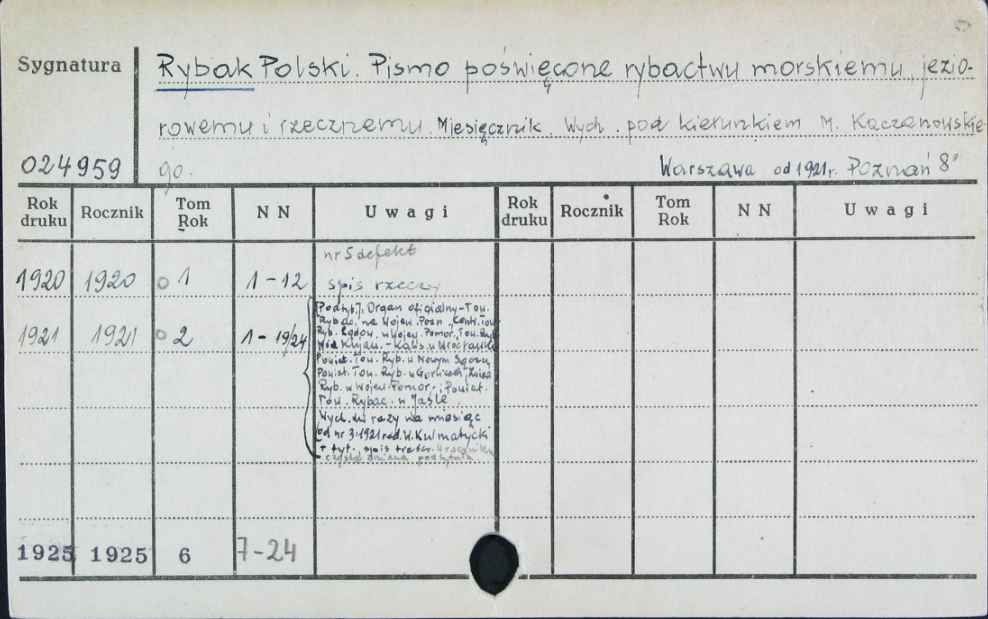 Sygnatura
Rybak Polski. Pismo poświęcone rybactwu morskiemu, jezio-
rowemu i rzecznemu. Miesięcznik. Wych. pod kierunkiem M. Kączanowskie-
024959 go. Warszawa od 1921r. Poznań 8°
Rok druku Rocznik Tom Rok NN Uwagi Rok druku Rocznik Tom Rok NN Uwagi
nr 5 defekt
1920 1920 1 1-12 spis rzeczy
[Podtyt.]. Organ oficjalny Tow.
Rybac. na Wojew. Pozn., Centr. Tow.
1921 1921 2 1-19/24 Ryb. w Wojew. Pomor., Tow. Ryb.
Kujaw.-Kalis.
Powiat. Tow. Ryb. w Nowym Sączu,
Powiat. Tow. Ryb. w Gorlicach,
Ryb. w Wojew. Pomor. i Powiat.
Tow. Rybac. w Jaśle.
Wych. dwa razy na miesiąc
od nr 3.1921 red. W. Kulmatycki
tyt., spis treści
zmiana podtytułu
1925 1925 6 7-24